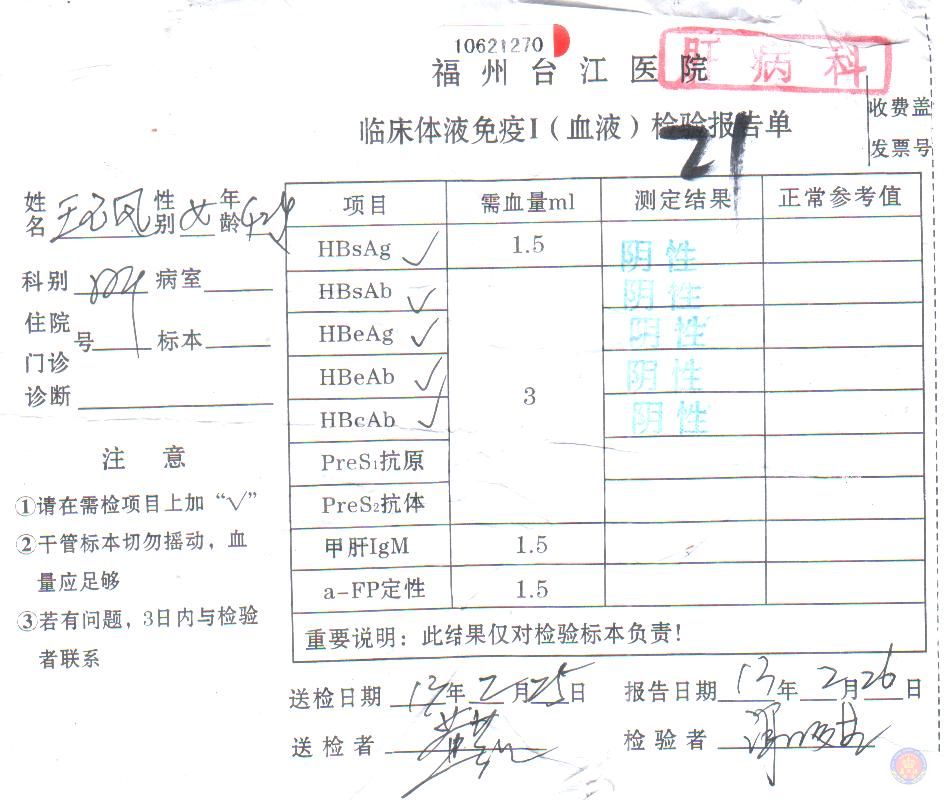 10621270
福州台江医院
肝病科
临床体液免疫I（血液）检验报告单
21
收费盖
发票号
姓名 性别 女 年龄 42岁
科别 病室
住院
号 标本
门诊
诊断
注 意
①请在需检项目上加“√”
②干管标本切勿摇动，血
量应足够
③若有问题，3日内与检验
者联系
项目 需血量ml 测定结果 正常参考值
HBsAg ✓ 1.5 阴性
HBsAb ✓ 阴性
HBeAg ✓ 阴性
HBeAb ✓ 3 阴性
HBcAb ✓ 阴性
PreS₁抗原
PreS₂抗体
甲肝IgM 1.5
a-FP定性 1.5
重要说明：此结果仅对检验标本负责！
送检日期 13年2月25日 报告日期 13年2月26日
送检者 检验者